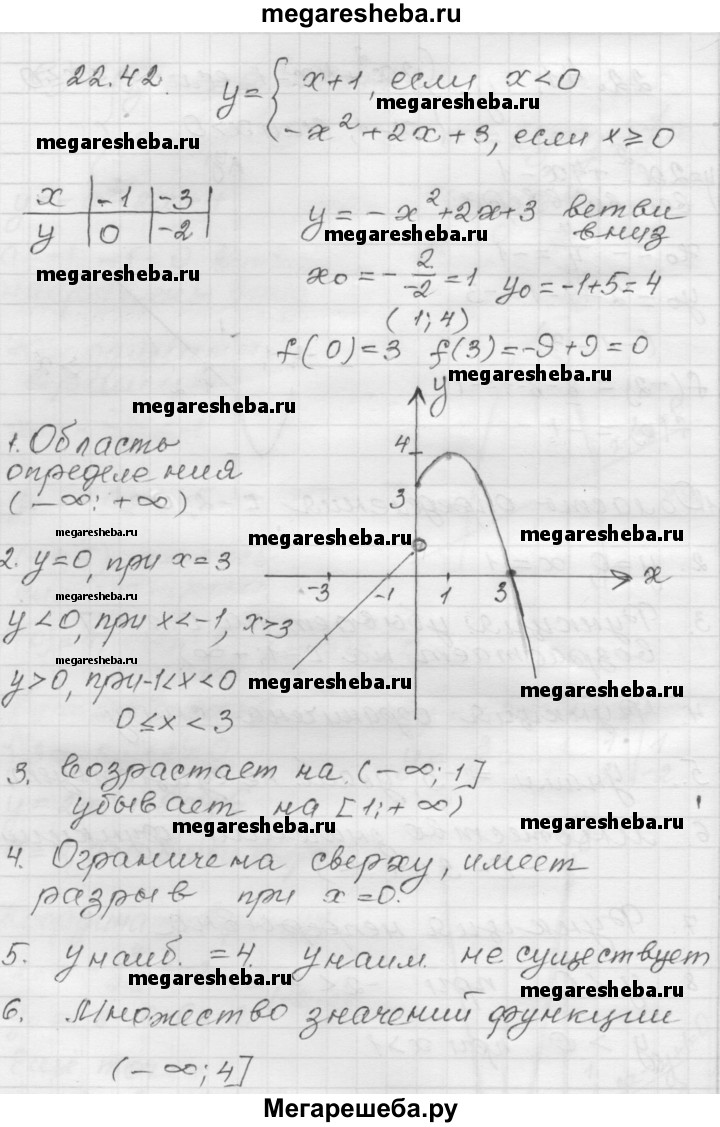 megaresheba.ru
22.42. y = { x+1, если x<0
megaresheba.ru
-x²+2x+3, если x≥0
megaresheba.ru
x | -1 | -3 |
y | 0 | -2 |
y = -x²+2x+3 ветви
вниз
megaresheba.ru
megaresheba.ru
x₀ = - 2/-2 = 1 y₀ = -1+5 = 4
(1; 4)
f(0) = 3 f(3) = -9+9 = 0
megaresheba.ru
y
megaresheba.ru
4
3
x
-3
-1
1
3
1. Область
определения
(-∞; +∞)
megaresheba.ru
megaresheba.ru
megaresheba.ru
2. y=0, при x=3
megaresheba.ru
y<0, при x<-1, x>3
megaresheba.ru
y>0, при -1<x<0
megaresheba.ru
megaresheba.ru
0≤x<3
3. возрастает на (-∞; 1]
убывает на [1; +∞)
megaresheba.ru
megaresheba.ru
4. Ограничена сверху, имеет
разрыв при x=0.
5. y наиб. = 4. y наим. не существует
megaresheba.ru
megaresheba.ru
6. Множество значений функции
(-∞; 4]
Мегарешеба.ру